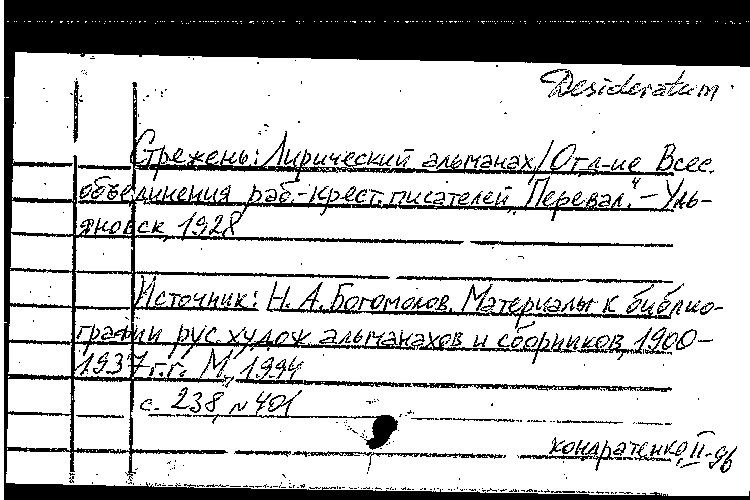 Desideratum.
Стрежень: Лирический альманах/Отд-ие Всес.
объединения раб.-крест. писателей „Перевал“. – Уль-
яновск, 1928
Источник: Н. А. Богомолов. Материалы к библио-
графии рус. худож. альманахов и сборников, 1900–
1937 г.г. М., 1994
с. 238, № 401
Кондратенко, II-96